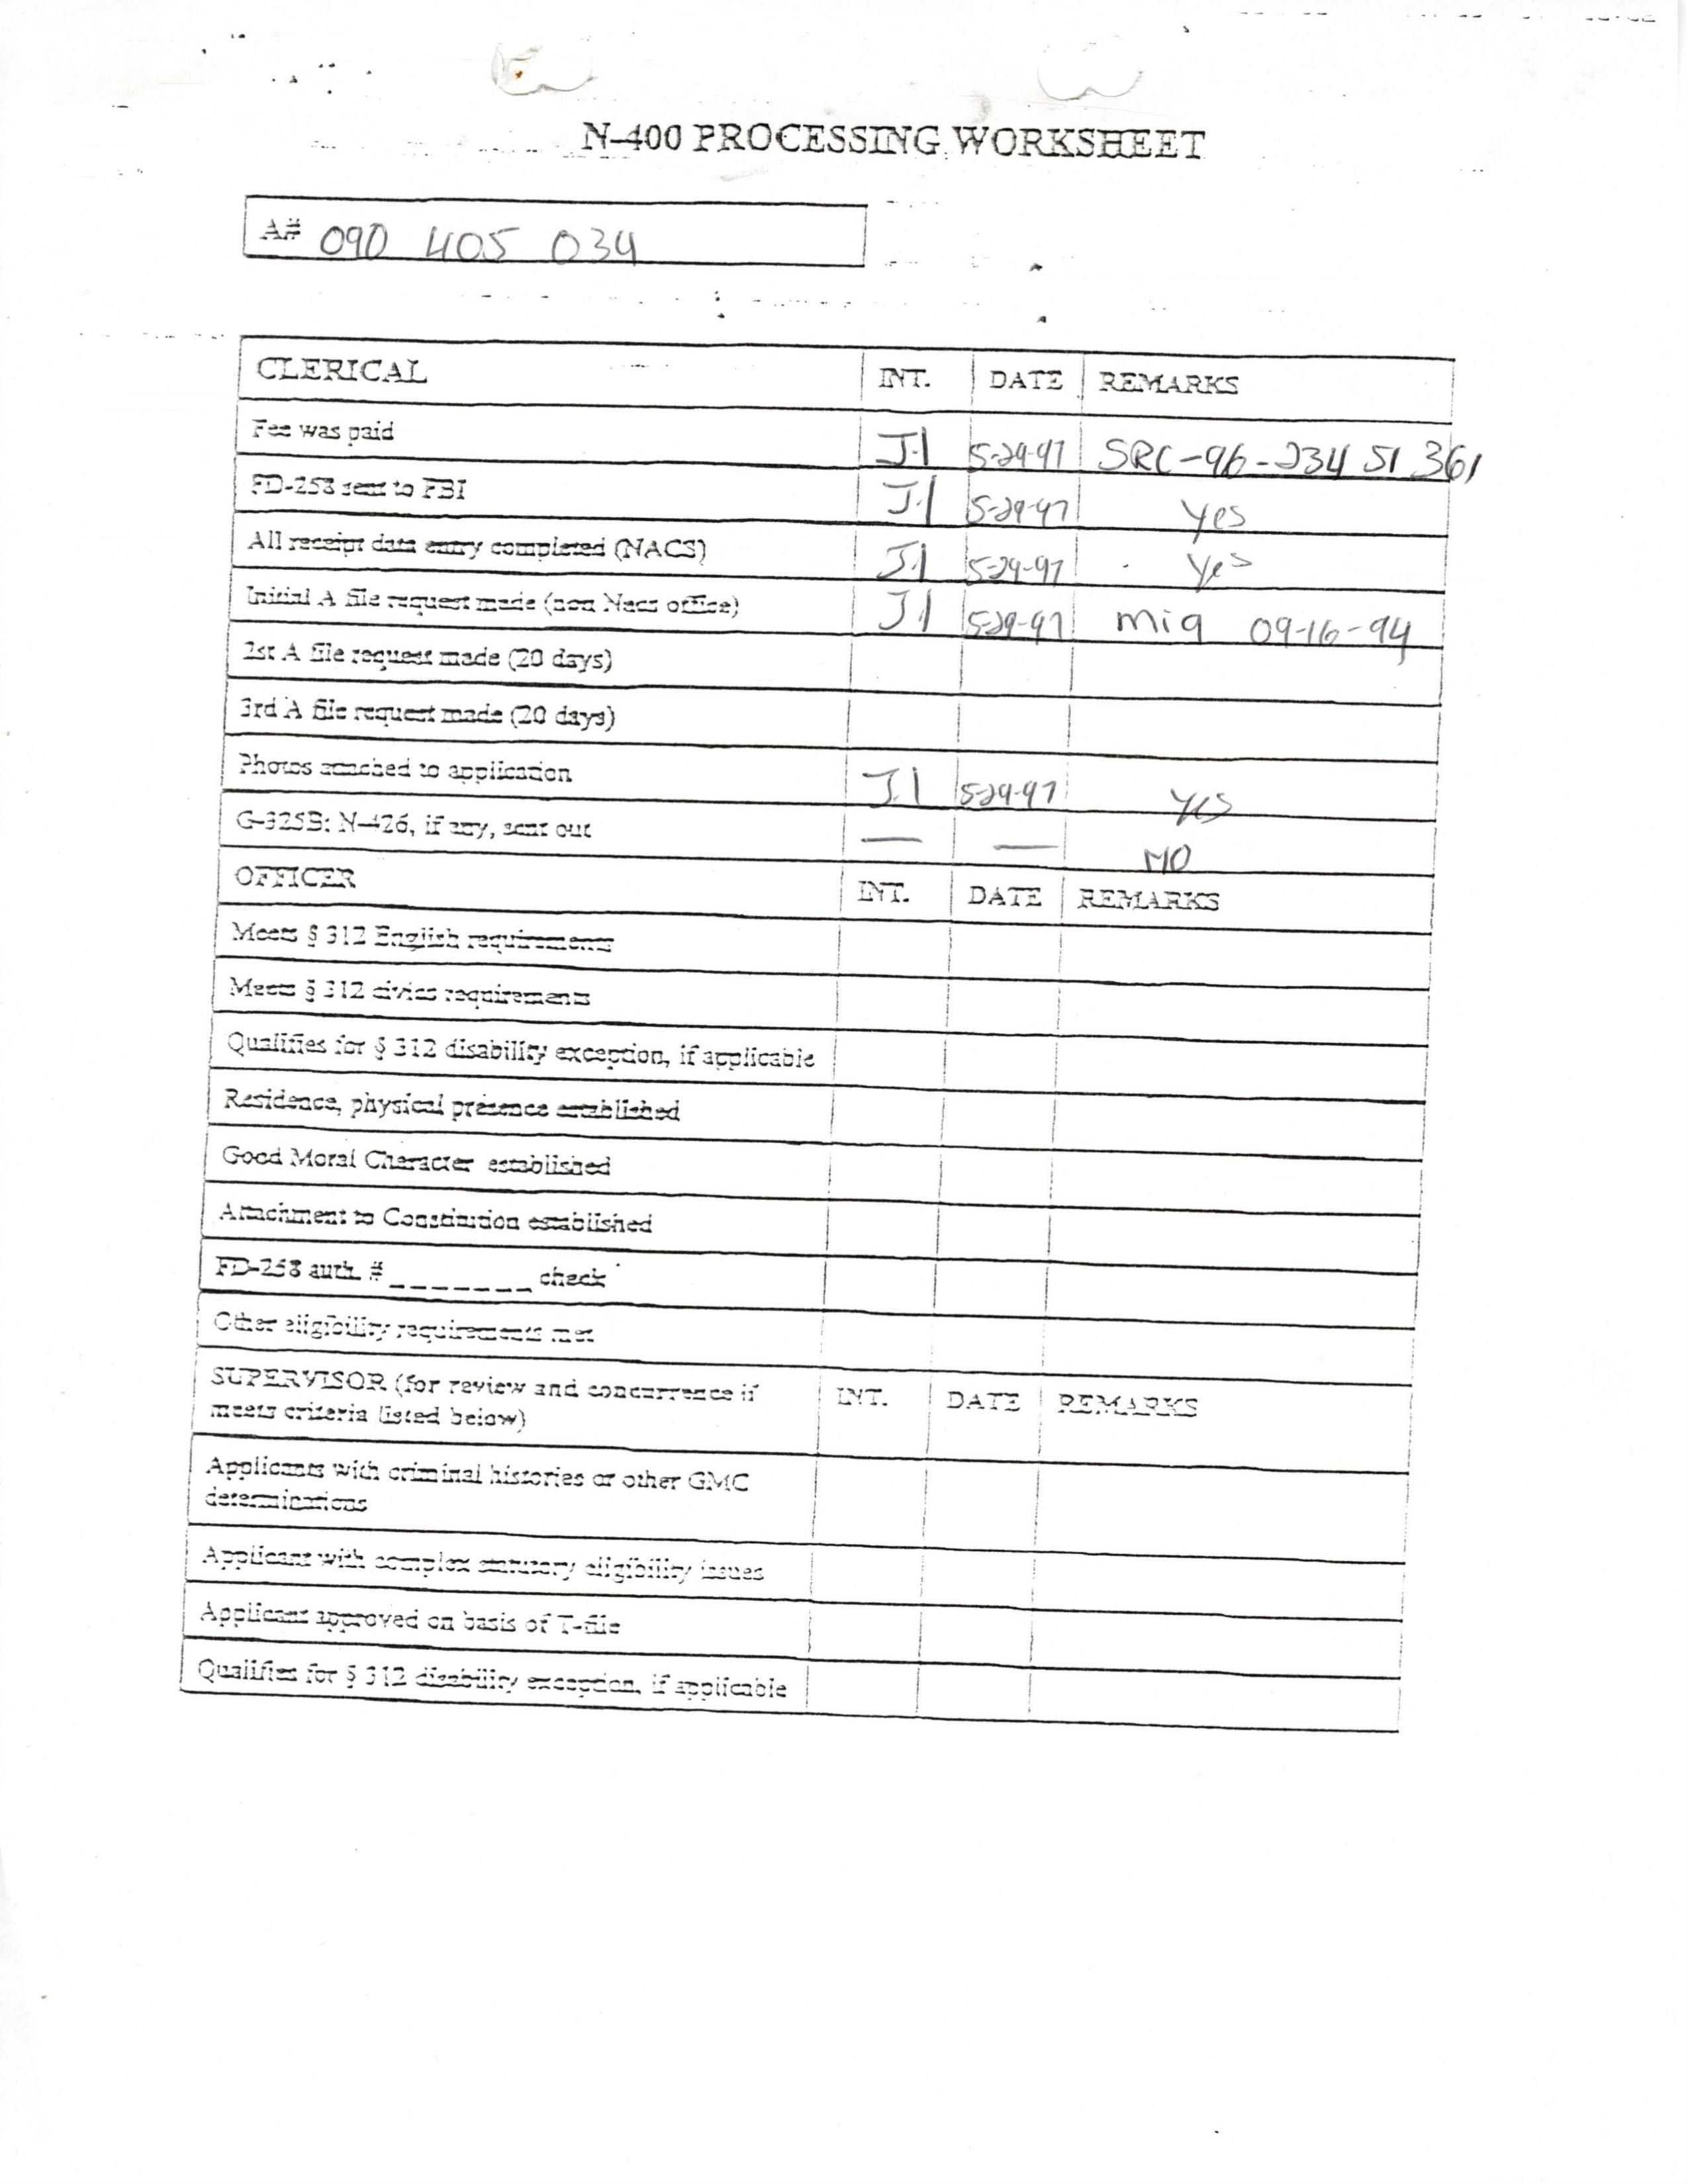 N-400 PROCESSING WORKSHEET
A# 090 405 034
CLERICAL INT. DATE REMARKS
Fee was paid J.I 5-29-97 SRC-96-234 51 361
FD-258 sent to FBI J.I 5-29-97 yes
All receipt data entry completed (NACS) J.I 5-29-97 yes
Initial A file request made (non Nacs office) J.I 5-29-97 mia 09-16-94
2st A file request made (20 days)
3rd A file request made (20 days)
Photos attached to application J.I 5-29-97 yes
G-325B: N-426, if any, sent out — — NO
OFFICER INT. DATE REMARKS
Meets § 312 English requirements
Meets § 312 civics requirements
Qualifies for § 312 disability exception, if applicable
Residence, physical presence established
Good Moral Character established
Attachment to Constitution established
FD-258 auth. # _ _ _ _ _ _ _ check
Other eligibility requirements met
SUPERVISOR (for review and concurrence if INT. DATE REMARKS
meets criteria listed below)
Applicants with criminal histories or other GMC
determinations
Applicant with complex statutory eligibility issues
Applicant approved on basis of T-file
Qualifies for § 312 disability exception, if applicable